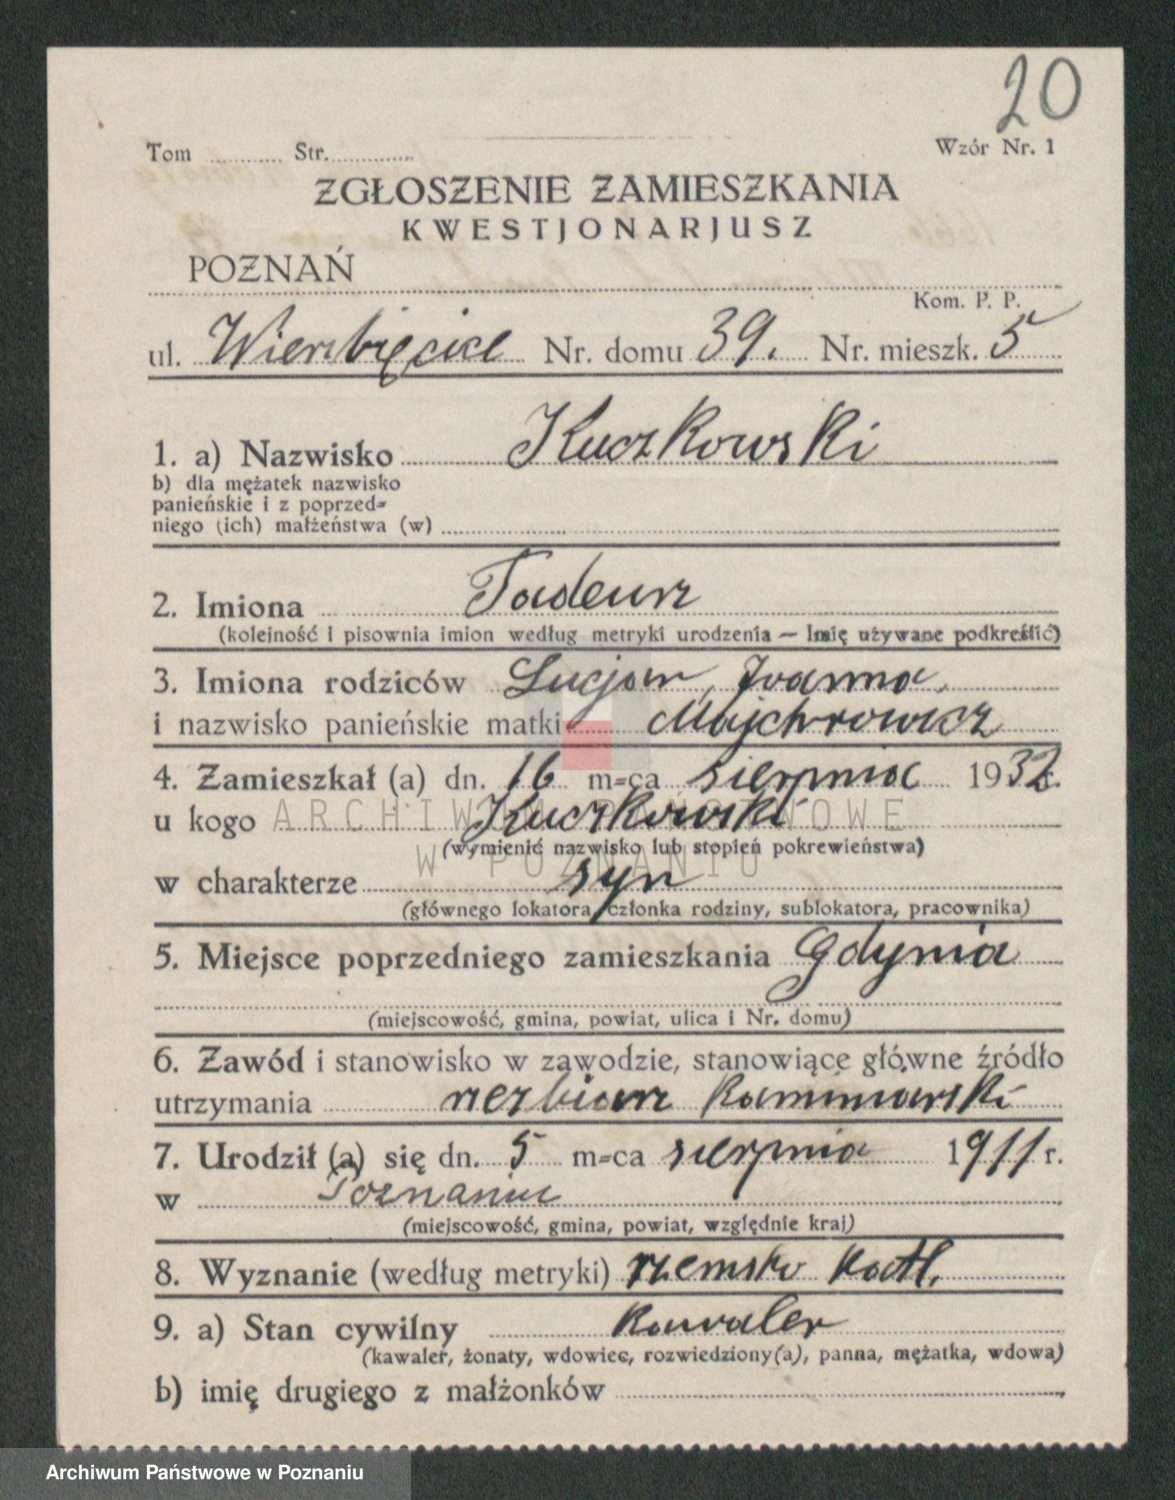 20
Tom ............ Str. ............ Wzór Nr. 1
ZGŁOSZENIE ZAMIESZKANIA
KWESTJONARJUSZ
POZNAŃ
Kom. P. P.
ul. Wierzbięcice Nr. domu 39. Nr. mieszk. 5
1. a) Nazwisko Kuczkowski
b) dla mężatek nazwisko
panieńskie i z poprzed=
niego (ich) małżeństwa (w)
2. Imiona Tadeusz
(kolejność i pisownia imion według metryki urodzenia — Imię używane podkreślić)
3. Imiona rodziców Lucjan, Joanna,
i nazwisko panieńskie matki Majchrowicz
4. Zamieszkał (a) dn. 16 m=ca sierpnia 1932 r.
u kogo Kuczkowski
(wymienić nazwisko lub stopień pokrewieństwa)
w charakterze syn
(głównego lokatora, członka rodziny, sublokatora, pracownika)
ARCHIWUM PAŃSTWOWE
W POZNANIU
5. Miejsce poprzedniego zamieszkania Gdynia
(miejscowość, gmina, powiat, ulica i Nr. domu)
6. Zawód i stanowisko w zawodzie, stanowiące główne źródło
utrzymania rzeźbiarz kamieniarski
7. Urodził (a) się dn. 5 m=ca sierpnia 1911 r.
w Poznaniu
(miejscowość, gmina, powiat, względnie kraj)
8. Wyznanie (według metryki) rzemsko katl.
9. a) Stan cywilny kawaler
(kawaler, żonaty, wdowiec, rozwiedziony(a), panna, mężatka, wdowa)
b) imię drugiego z małżonków
Archiwum Państwowe w Poznaniu